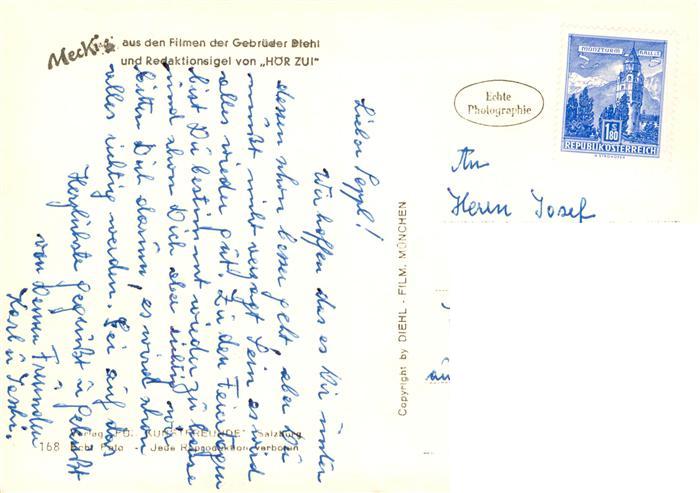 Mecki aus den Filmen der Gebrüder Diehl
und Redaktionsigel von „HÖR ZU!"
Lieber Seppl!
Wir hoffen das es Dir unter
dessen schon besser geht, aber Du
mußt nicht verzagt sein es wird
alles wieder gut. Zu den Feiertagen
bist Du bestimmt wieder zu Hause
und schon Dich aber richtig wir
bitten Dich darum, es wird schon
alles richtig werden. Sei auf das
Herzlichste gegrüßt u geküßt
von Deinen Freunden
Karl u
Verlag KUNSTFREUNDE" Salzburg
168 Echt Foto - Jede Reproduktion verboten
Copyright by DIEHL - FILM, MÜNCHEN
Echte
Photographie
MÜNZTURM HALL i. T.
5 5
1.80
REPUBLIK ÖSTERREICH
An
Herrn Josef